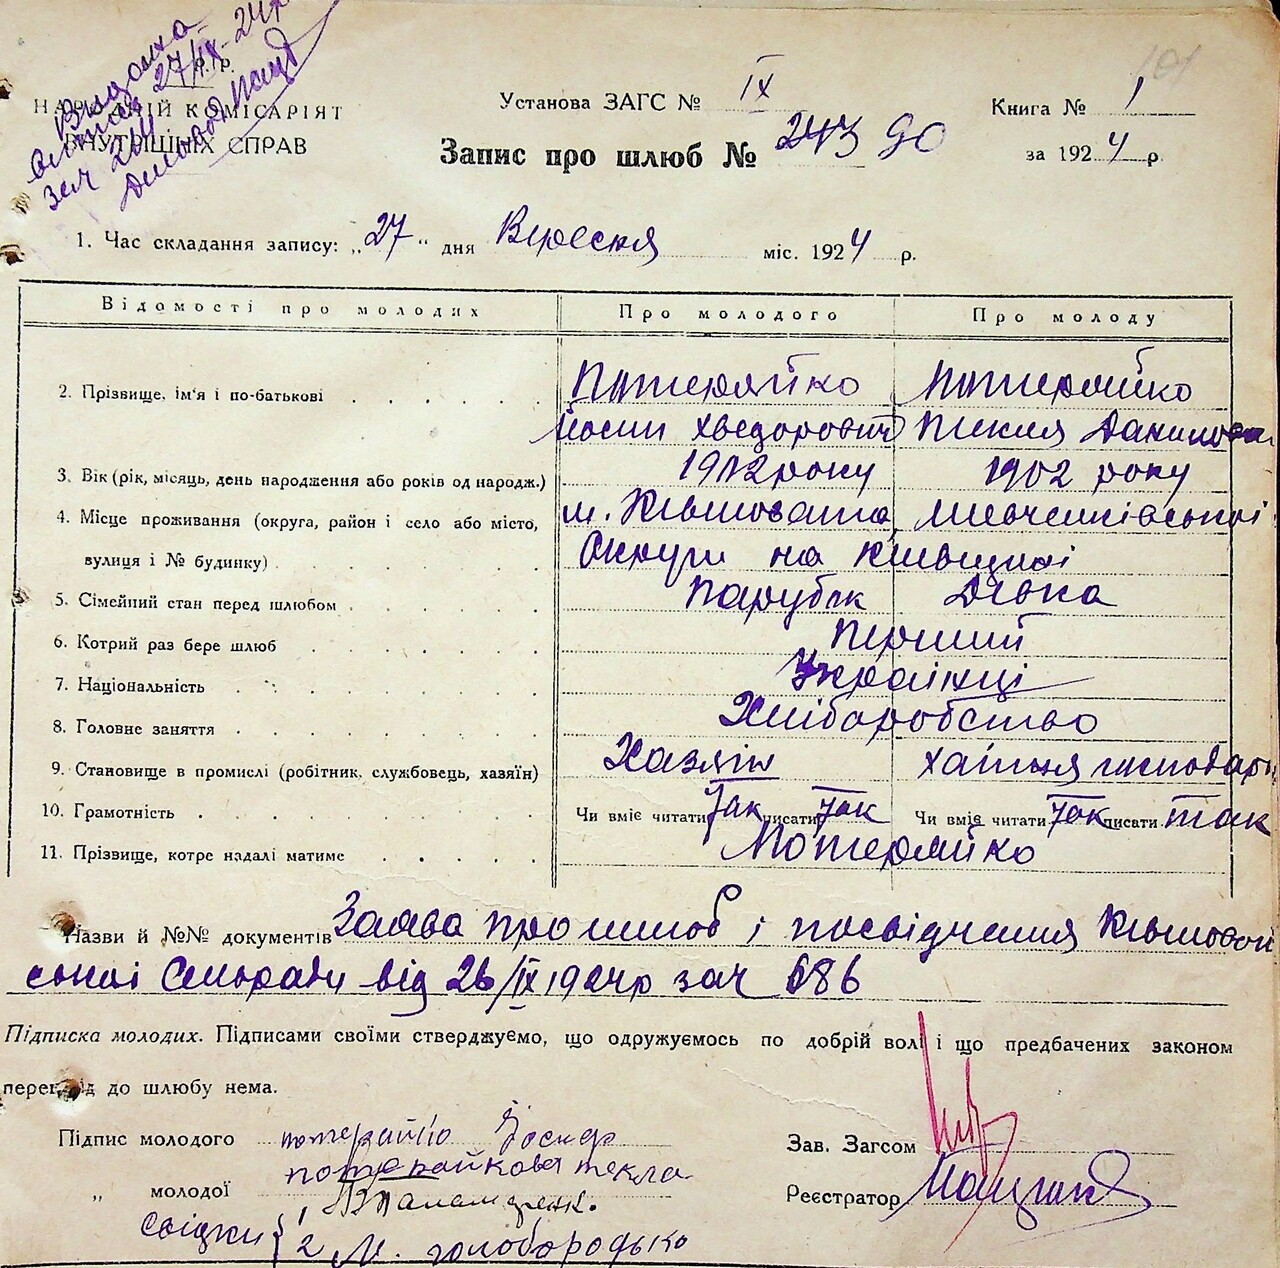 Видана
27/IX-24р
НАРОДНІЙ КОМІСАРІЯТ
ВНУТРІШНІХ СПРАВ
Установа ЗАГС № IX
Книга № 1
Запис про шлюб № 243 90
за 1924 р.
1. Час складання запису: „27" дня Вересня міс. 1924 р.
Відомості про молодих Про молодого Про молоду
2. Прізвище, ім'я і по-батькові Потерайко Потерайко
Йосип Хведорович Текля Даниловна
3. Вік (рік, місяць, день народження або років од народж.) року 1902 року
4. Місце проживання (округа, район і село або місто, м. Ківшовата Шевченківської
вулиця і № будинку) Округи на Київщині
5. Сімейний стан перед шлюбом Парубок Дівка
6. Котрий раз бере шлюб Перший
7. Національність Українці
8. Головне заняття Хліборобство
9. Становище в промислі (робітник, службовець, хазяїн) Хазяїн хатня господарк
10. Грамотність Чи вміє читати Так писати Так Чи вміє читати Так писати Так
11. Прізвище, котре надалі матиме Потерайко
Назви й №№ документів Заява про шлюб і посвідчення Ківшоват
ської Сельради від 26/IX 1924р за № 686
Підписка молодих. Підписами своїми стверджуємо, що одружуємось по добрій волі і що предбачених законом
перешкід до шлюбу нема.
Підпис молодого потерайко Йосип
Зав. Загсом
потерайкова текла
„ молодої
Реєстратор
свідки 1
2 М. голобородько